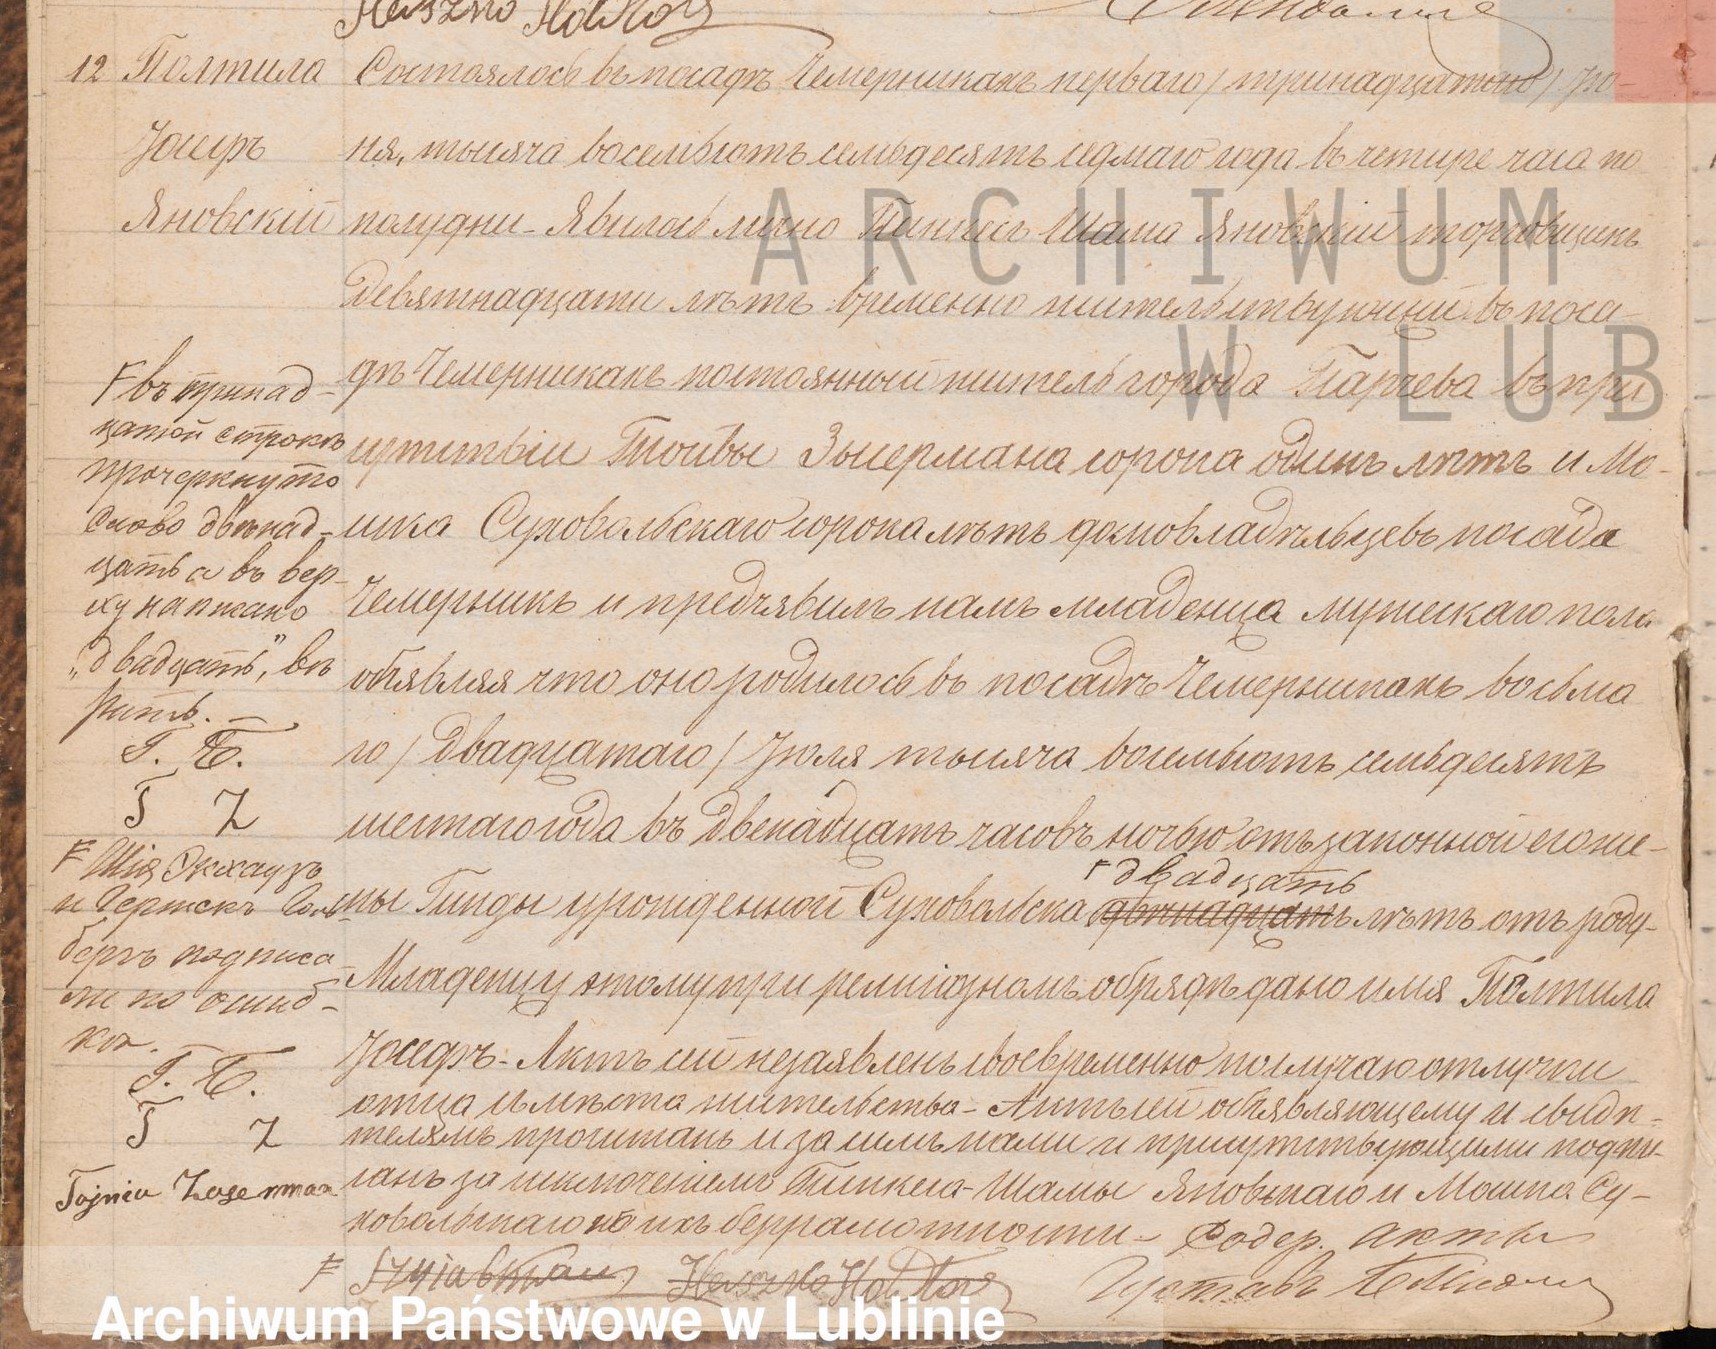 12 Палтила
Іосеръ
Яновскій
Состоялось въ посадѣ Чемерникахъ перваго / тринадцатаго / Ію-
ня, тысяча восемьсотъ семьдесятъ седмаго года въ четыре часа по
полудни - Явилось лично Пинкесъ Шама Яновскій торговщикъ
девятнадцати лѣтъ временно жительствующій въ поса-
дѣ Чемерникахъ постоянный житель города Парчева въ при
сутствіи Тойвы Зысермана сорока одинъ лѣтъ и Мо-
шка Суховольскаго сорока лѣтъ домовладѣльцевъ посада
Чемерникъ и предъявилъ намъ младенца мужескаго пола
объявляя что оно родилось въ посадѣ Чемерникахъ восьма
го / двадцатаго / Іюля тысяча восемьсотъ семьдесятъ
шестаго года въ двенадцать часовъ ночью отъ законной его же-
двадцать
ны Гинды урожденной Суховольска двѣнадцать лѣтъ отъ роду-
Младенцу этому при религіозномъ обрядѣ дано имя Палтила
Іосефъ - Актъ сей незаявленъ своевременно по случаю отлучки
отца съ мѣста жительства - Актъ сей объявляющему и свидѣ-
телямъ прочитанъ и за симъ нами и присутствующими подпи-
санъ за исключеніемъ Пинкеса-Шамы Яновскаго и Мошка Су-
ховольскаго по ихъ безграмотности - Содер. акты
въ тринад-
цатой строкѣ
прочеркнуто
слово двѣнад-
цать а въ вер-
ху написано
„двадцать", вѣ
рить.
Г. Б.
T Z
Шія Экхаузъ
и Гершекъ Голь-
бергъ подписа-
ли по ошиб-
кѣ.
Г. Б.
T Z
Tojwia Zyserman
Густавъ
ARCHIWUM
W LUB
Archiwum Państwowe w Lublinie